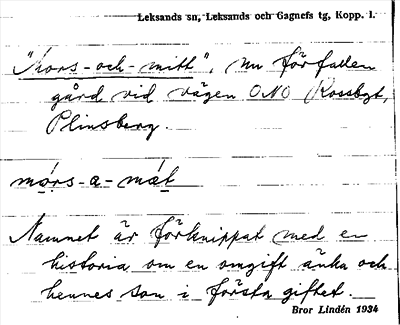 Leksands sn, Leksands och Gagnefs tg, Kopp. l.
"Mors-och-mitt", nu förfallen
gård vid vägen ONO Rossbgt,
Plinsberg.
mórs-a-mát
Namnet är förknippat med en
historia om en omgift änka och
hennes son i första giftet.
Bror Lindén 1934